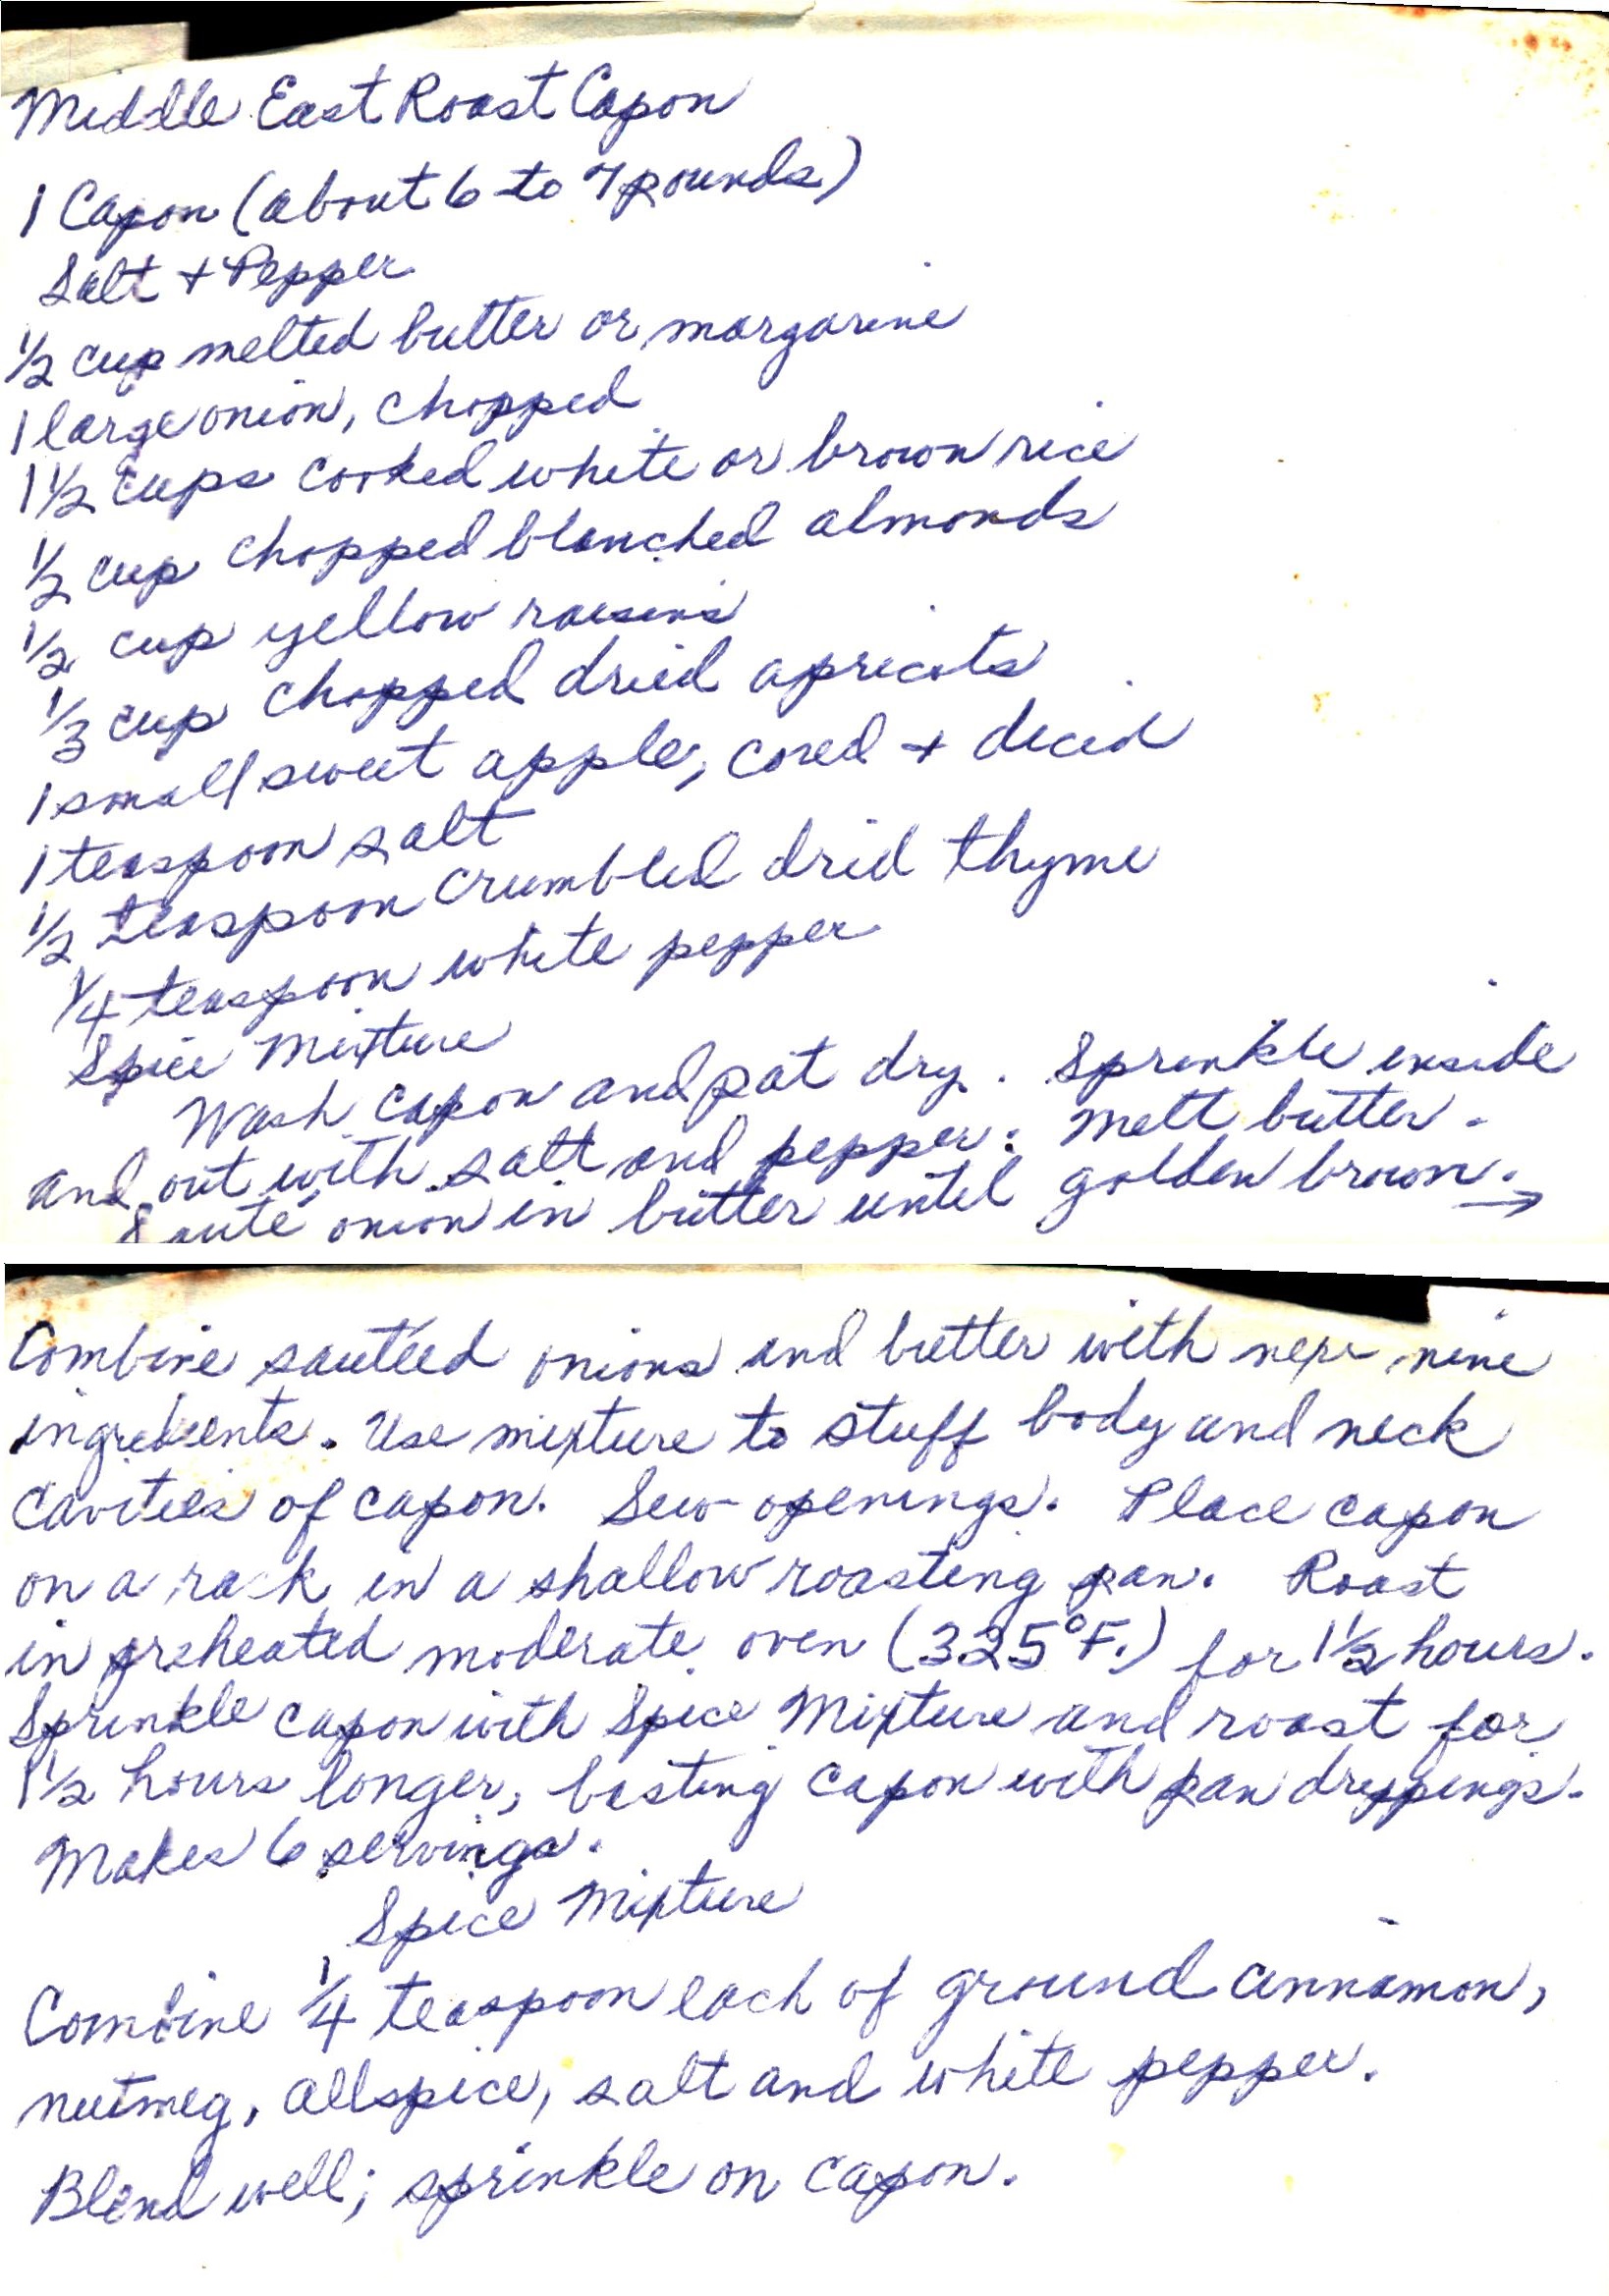 Middle East Roast Capon
1 Capon (about 6 to 7 pounds)
Salt + Pepper
1/2 cup melted butter or margarine
1 large onion, chopped
1 1/2 cups cooked white or brown rice
1/2 cup chopped blanched almonds
1/2 cup yellow raisins
1/3 cup chopped dried apricots
1 small sweet apple, cored + diced
1 teaspoon salt
1/2 teaspoon crumbled dried thyme
1/4 teaspoon white pepper
Spice Mixture
Wash capon and pat dry. Sprinkle inside
and out with salt and pepper. Melt butter.
Sauté onion in butter until golden brown. →
Combine sautéed onions and butter with next nine
ingredients. Use mixture to stuff body and neck
cavities of capon. Sew openings. Place capon
on a rack in a shallow roasting pan. Roast
in preheated moderate oven (325°F.) for 1 1/2 hours.
Sprinkle capon with Spice Mixture and roast for
1 1/2 hours longer, basting capon with pan drippings.
Makes 6 servings.
Spice Mixture
Combine 1/4 teaspoon each of ground cinnamon,
nutmeg, allspice, salt and white pepper.
Blend well; sprinkle on capon.